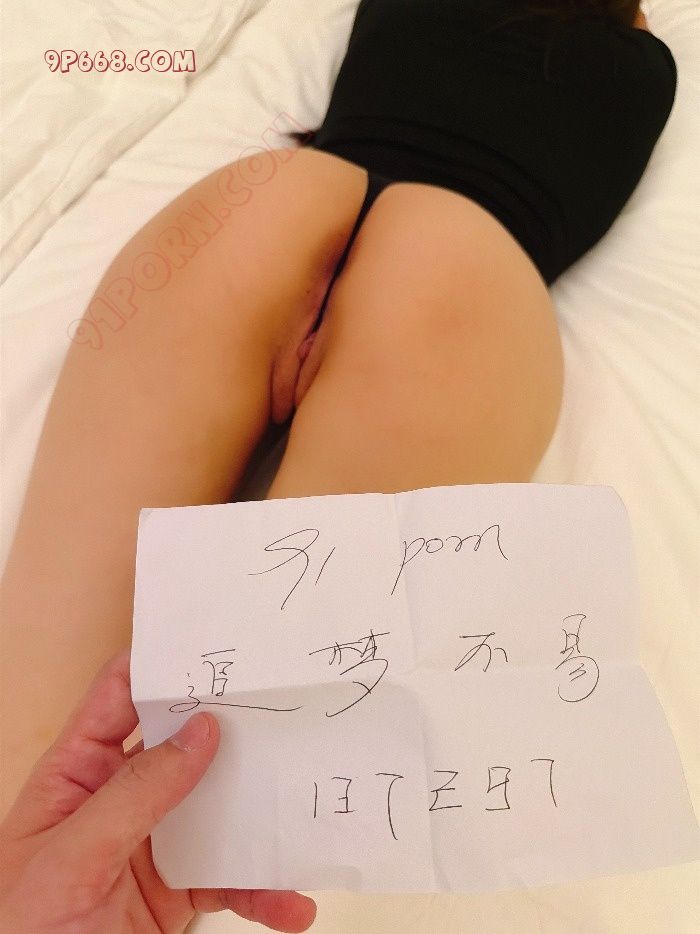 9P668.COM
91PORN.COM
91 porn
追梦不易
137297